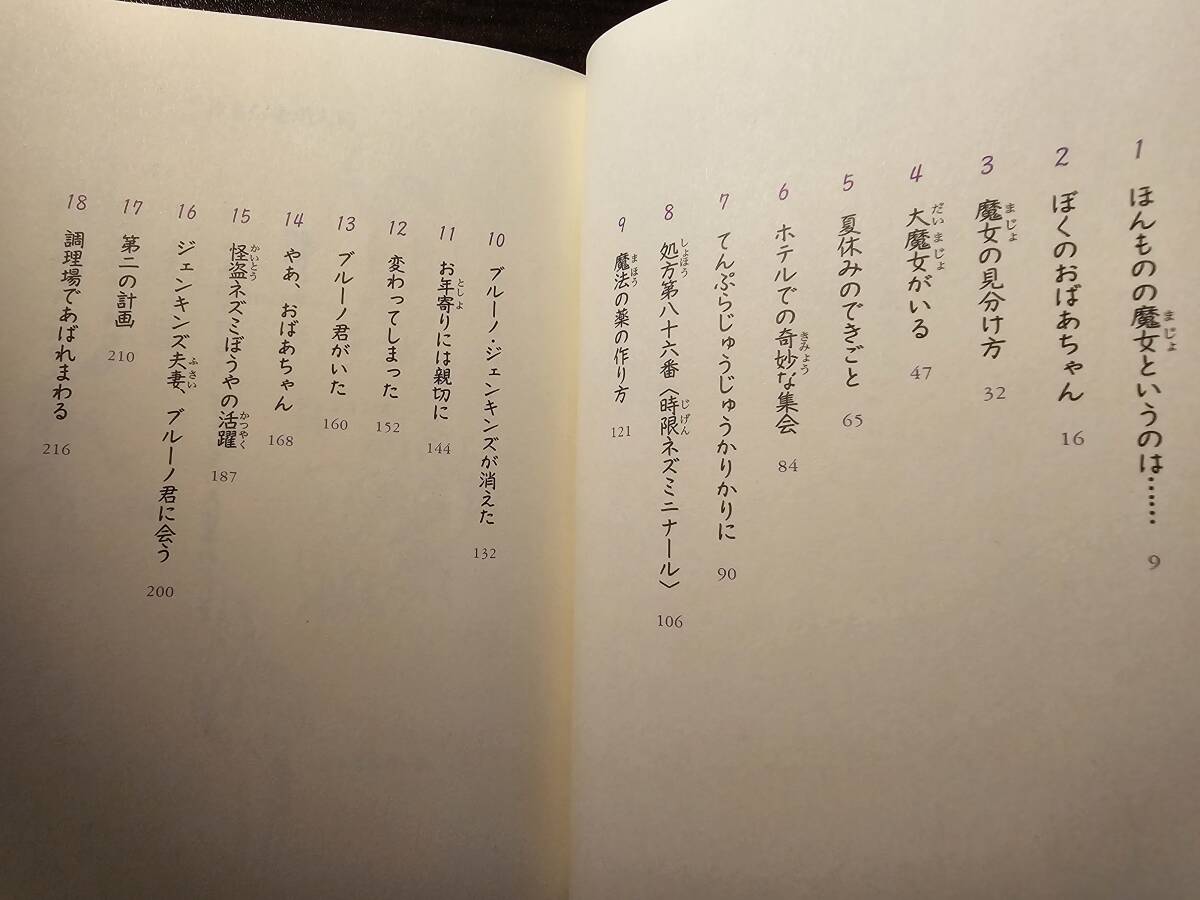 1 ほんものの魔女というのは…… 9
2 ぼくのおばあちゃん 16
3 魔女の見分け方 32
4 大魔女がいる 47
5 夏休みのできごと 65
6 ホテルでの奇妙な集会 84
7 てんぷらじゅうじゅうかりかりに 90
8 処方第八十六番〈時限ネズミニナール〉 106
9 魔法の薬の作り方 121
10 ブルーノ・ジェンキンズが消えた 132
11 お年寄りには親切に 144
12 変わってしまった 152
13 ブルーノ君がいた 160
14 やあ、おばあちゃん 168
15 怪盗ネズミぼうやの活躍 187
16 ジェンキンズ夫妻、ブルーノ君に会う 200
17 第二の計画 210
18 調理場であばれまわる 216